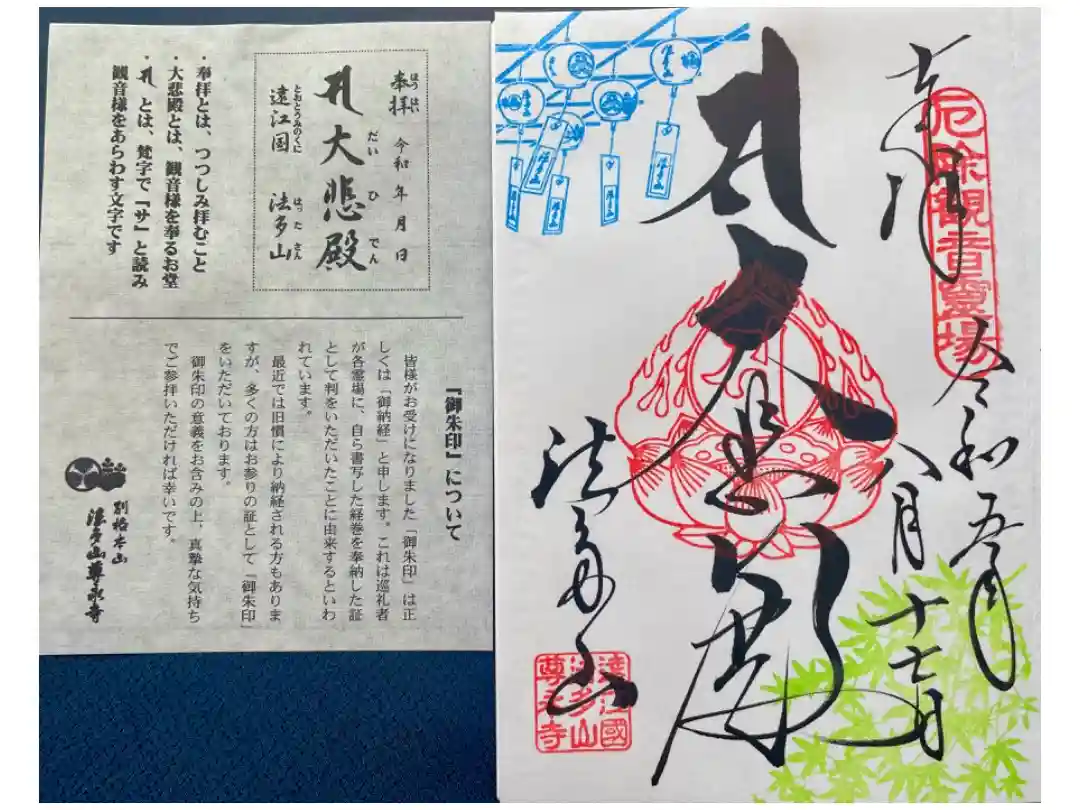 奉拝
令和五年
八月十七日
厄除観音霊場
大悲殿
法多山
遠江國
法多山
尊永寺
奉拝 令和 年 月 日
ほうはい
大悲殿
だいひでん
遠江国 法多山
とおとうみのくに はったさん
・奉拝とは、つつしみ拝むこと
・大悲殿とは、観音様を奉るお堂
・ とは、梵字で『サ』と読み
観音様をあらわす文字です
『御朱印』について
皆様がお受けになりました「御朱印」は正
しくは「御納経」と申します。これは巡礼者
が各霊場に、自ら書写した経巻を奉納した証
として判をいただいたことに由来するといわ
れています。
最近では旧慣により納経される方もありま
すが、多くの方はお参りの証として『御朱印』
をいただいております。
御朱印の意義をお含みの上、真摯な気持ち
でご参拝いただければ幸いです。
別格本山
法多山尊永寺